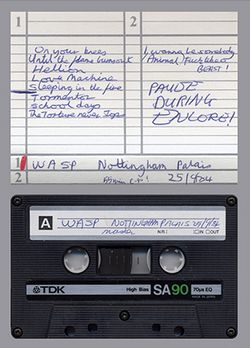 1
2
On your knees
Until the flame burns out
Hellion
Love Machine
Sleeping in the fire
Tormentor
school days
The Torture never Stops
I wanna be somebody
Animal / Fuck like a
BEAST!
PAUSE
DURING
ENCORE!
1 WASP Nottingham Palais
2
25/9/84
A
WASP NOTTINGHAM PALAIS 25/9/84
master
N.R.
IN OUT
TDK
High Bias
SA90
70µs EQ